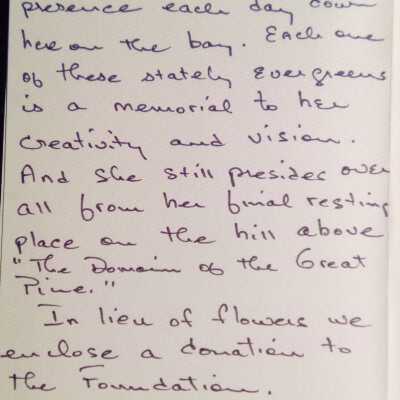 presence each day down
here on the bay. Each one
of these stately evergreens
is a memorial to her
creativity and vision.
And she still presides over
all from her final resting
place on the hill above
"The Domain of the Great
Pine."
In lieu of flowers we
enclose a donation to
the Foundation.